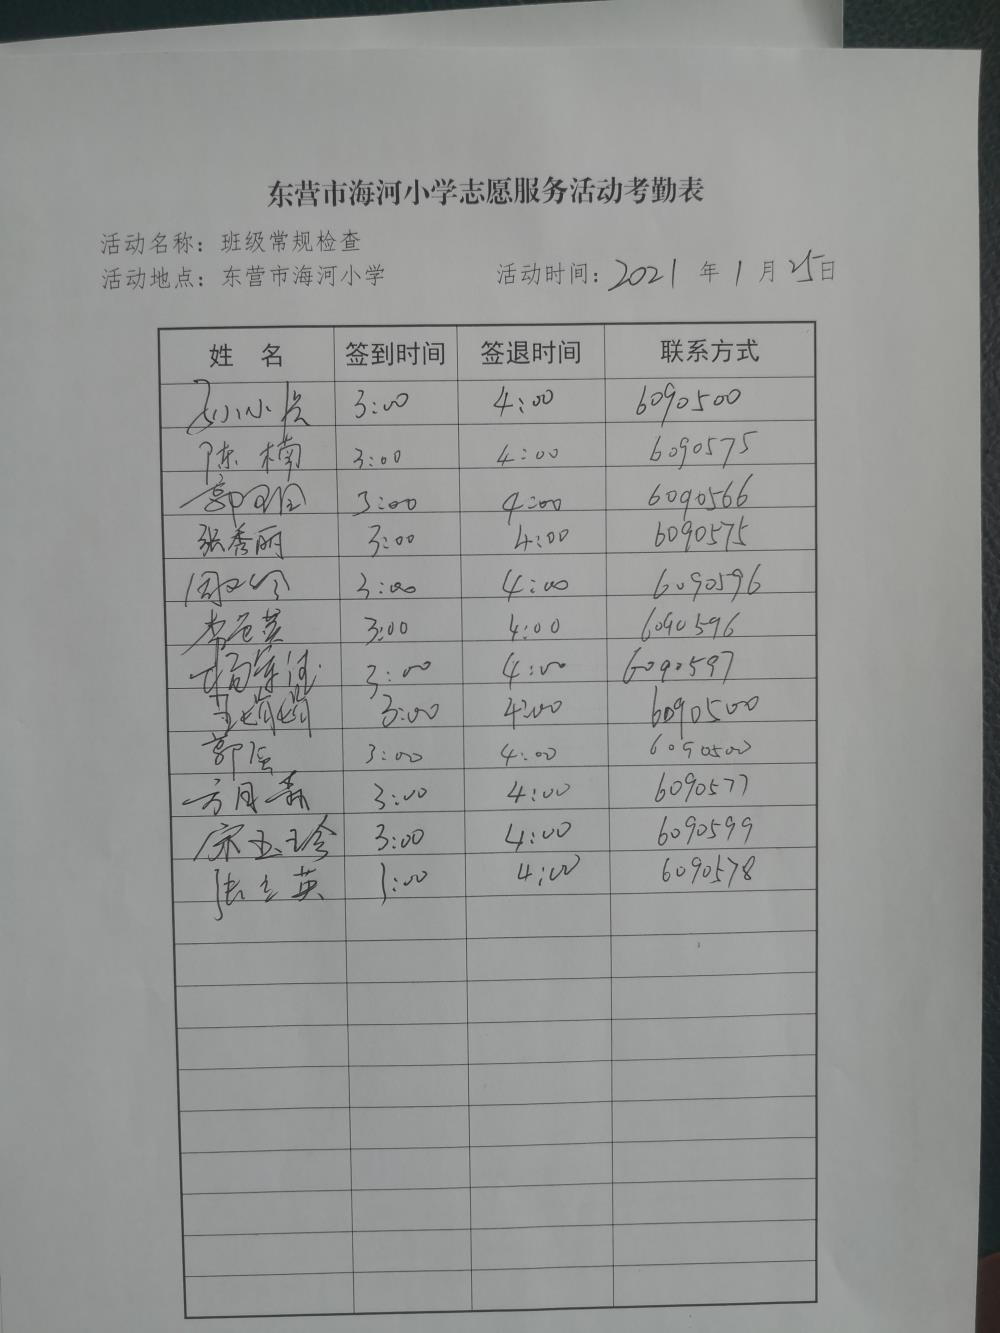 东营市海河小学志愿服务活动考勤表
活动名称：班级常规检查
活动地点：东营市海河小学 活动时间：2021 年 1 月 25 日
姓 名 签到时间 签退时间 联系方式
3:00 4:00 6090500
陈楠 3:00 4:00 6090575
郭 3:00 4:00 6090566
张秀丽 3:00 4:00 6090575
3:00 4:00 6090596
3:00 4:00 6090596
3:00 4:00 6090597
3:00 4:00 6090500
郭 3:00 4:00 6090500
3:00 4:00 6090577
宋玉珍 3:00 4:00 6090599
张立英 3:00 4:00 6090578